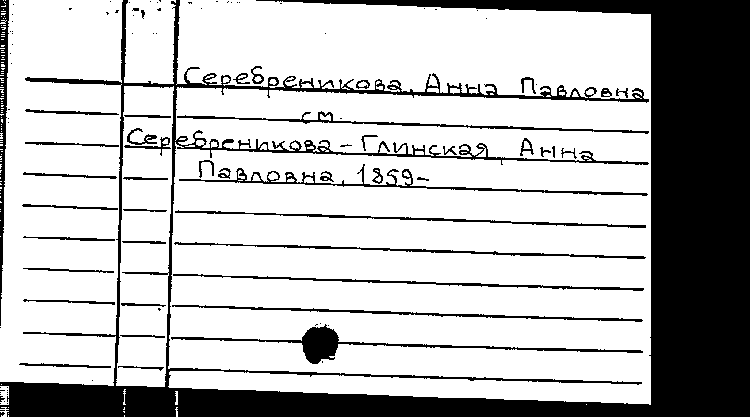 Серебреникова, Анна Павловна
см.
Серебреникова-Глинская, Анна
Павловна, 1859-